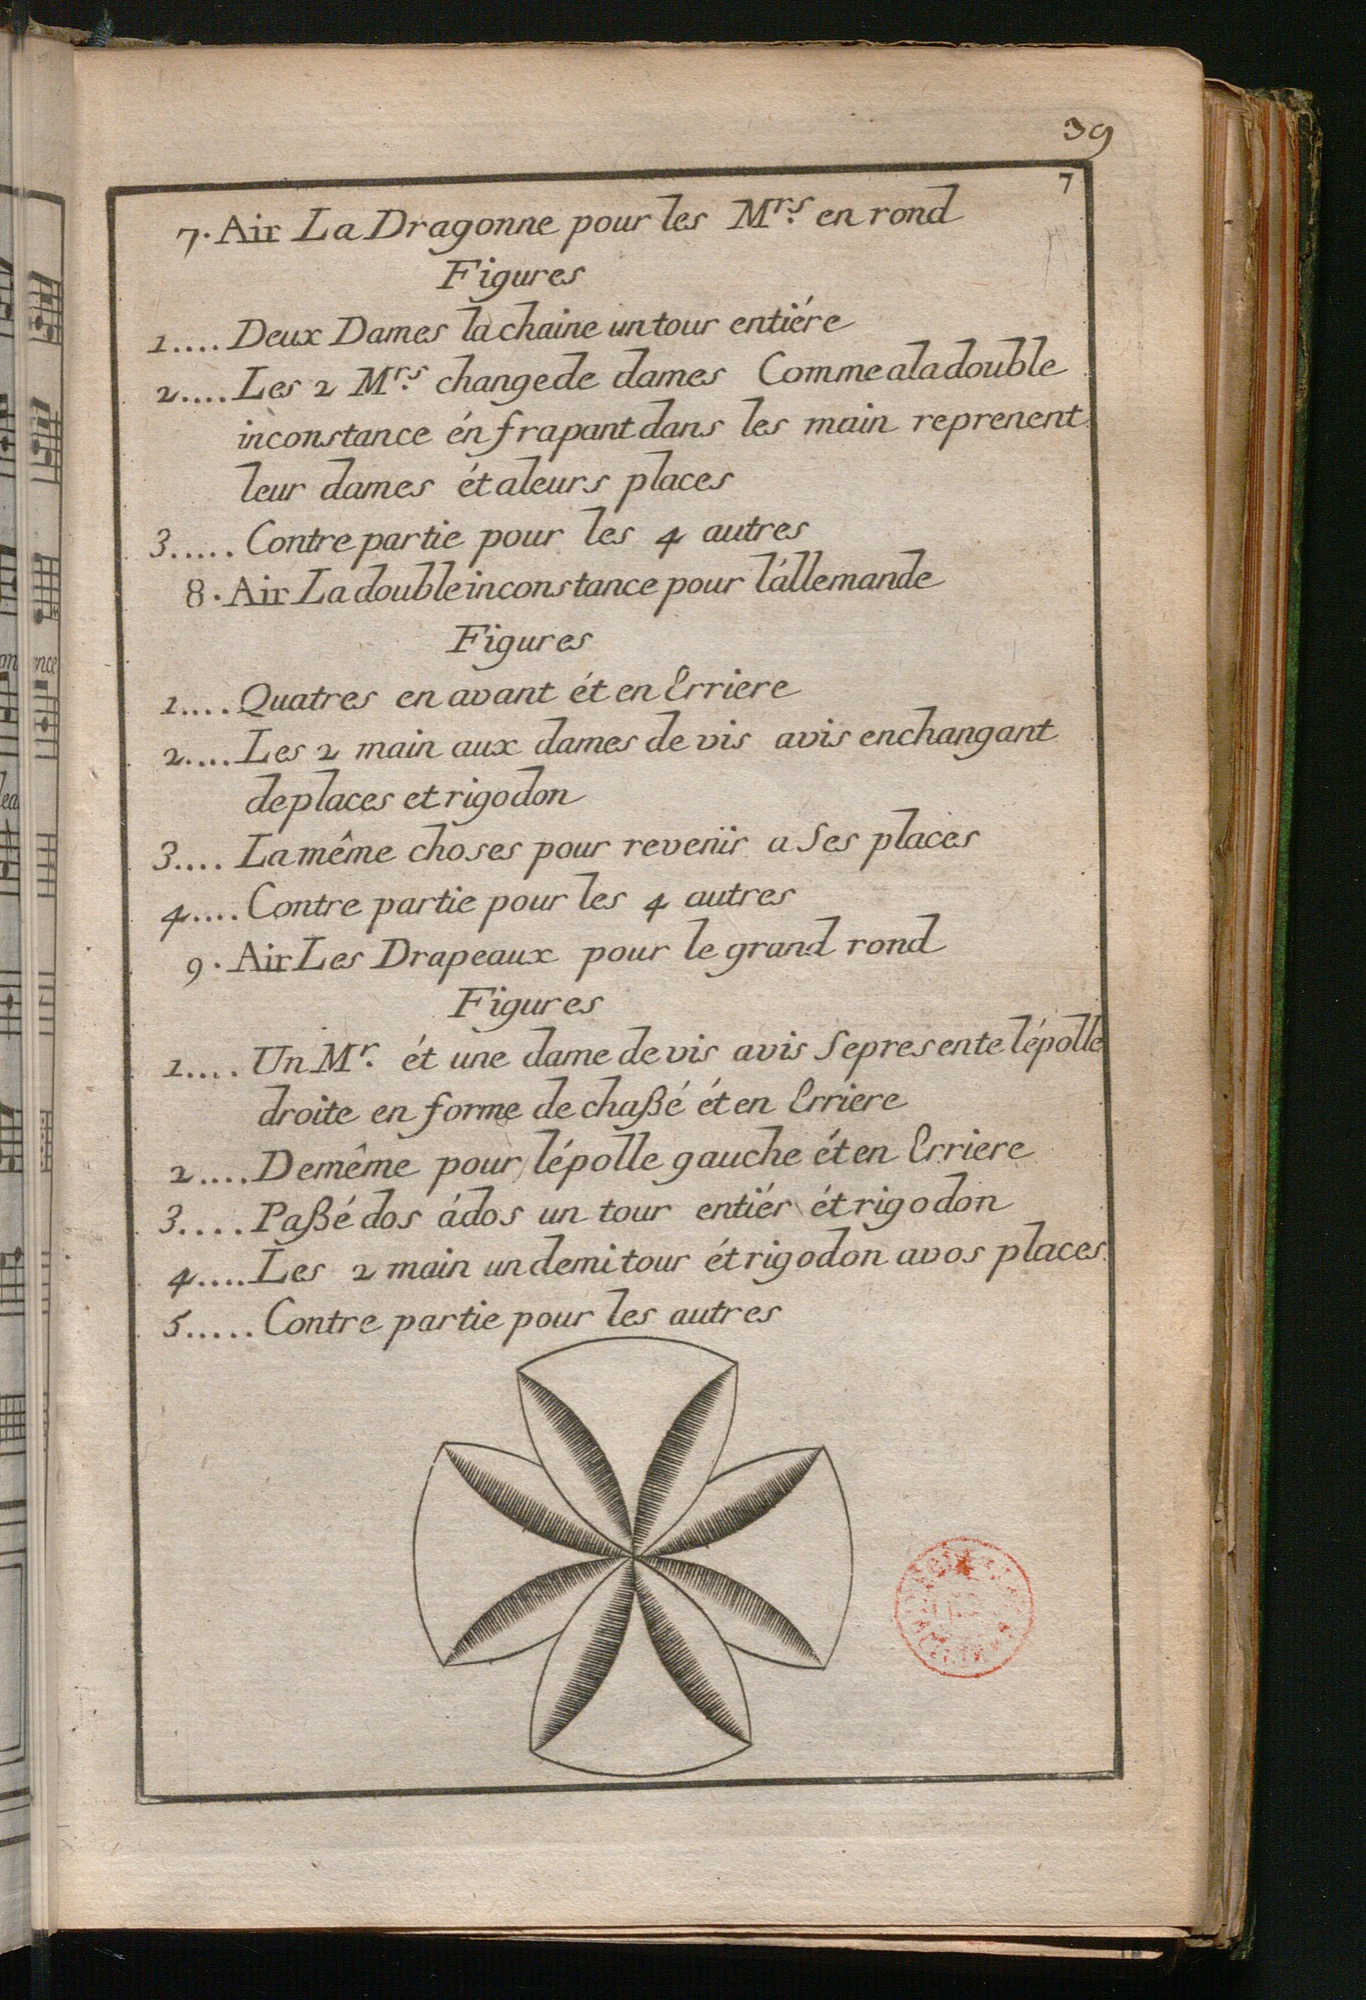 39
7
7. Air La Dragonne pour les Mrs. en rond
Figures
1.... Deux Dames la chaine un tour entiére
2.... Les 2 Mrs. change de dames Comme a la double
inconstance én frapant dans les main reprenent
leur dames ét a leurs places
3..... Contre partie pour les 4 autres
8. Air La double inconstance pour l'állemande
Figures
1.... Quatres en avant ét en Erriere
2.... Les 2 main aux dames de vis avis en changant
de places et rigodon
3.... La même choses pour revenir a Ses places
4.... Contre partie pour les 4 autres
9. Air Les Drapeaux pour le grand rond
Figures
1.... Un Mr. ét une dame de vis avis Se presente lépolle
droite en forme de chaßé ét en Erriere
2.... De même pour lépolle gauche ét en Erriere
3.... Paßé dos á dos un tour entiér ét rigodon
4.... Les 2 main un demi tour ét rigodon a vos places
5..... Contre partie pour les autres